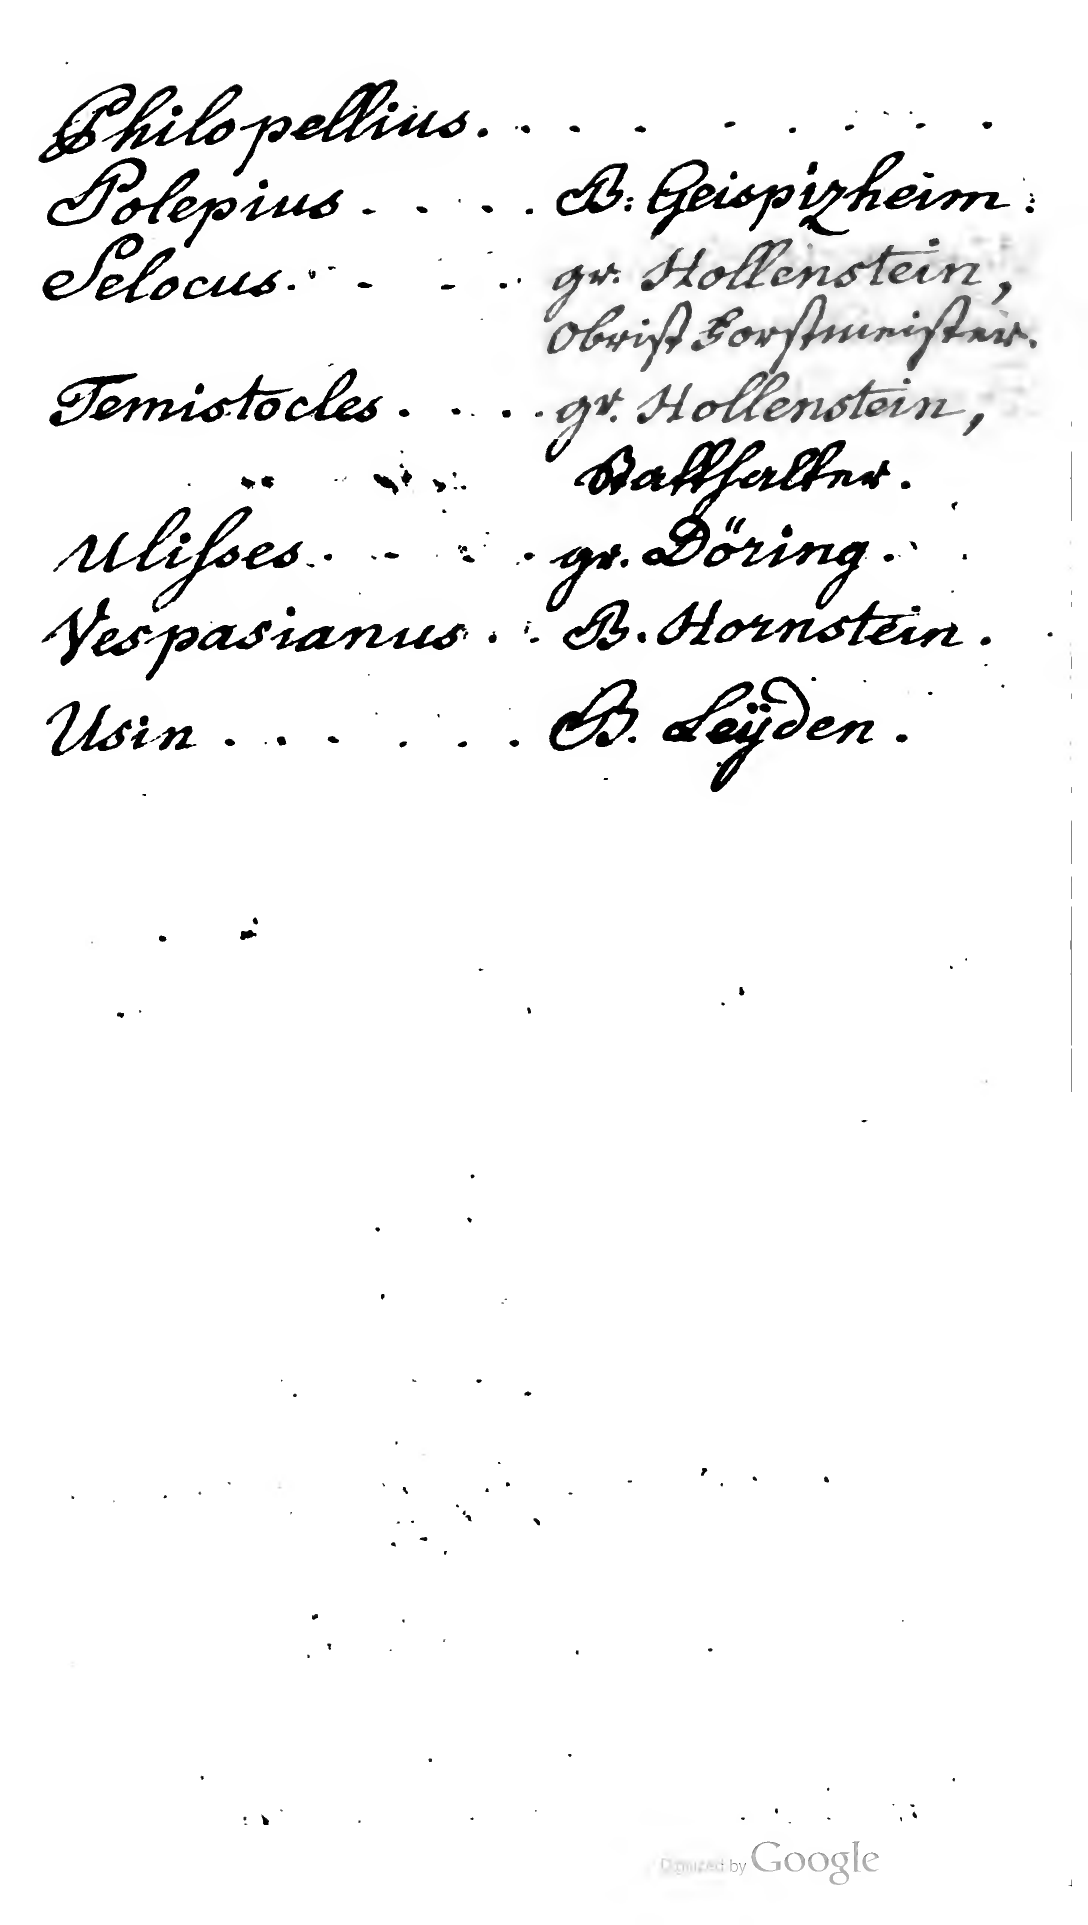 Philopellius. . . . . . . . . .
Polepius . . . . . B: Geispizheim :
Selocus. . . . . gr. Hollenstein,
Obrist Forstmeister.
Temistocles . . . . . gr. Hollenstein,
Statthalter.
Ulisses . . . . . gr. Döring .
Vespasianus . . B. Hornstein .
Usin . . . . . . B. Leÿden .
Digitized by Google